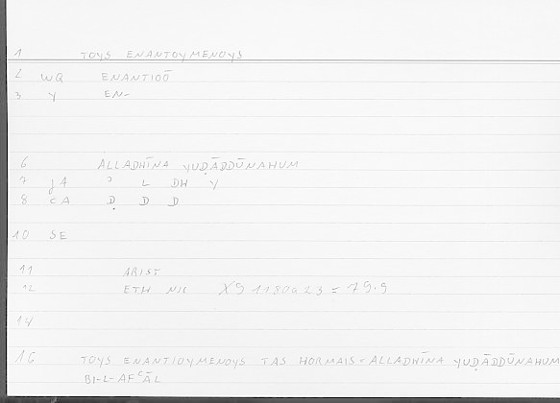 1 TOYS ENANTOYMENOYS
2 WQ ENANTIOŌ
3 Y EN-
6 ALLADHĪNA YUḌĀDDŪNAHUM
7 JA ʾ L DH Y
8 CA Ḍ D D
10 SE
11 ARIST
12 ETH NIC
14
16 TOYS ENANTIOYMENOYS TAS HORMAIS < ALLADHĪNA YUḌĀDDŪNAHUM
BI-L-AFʿĀL